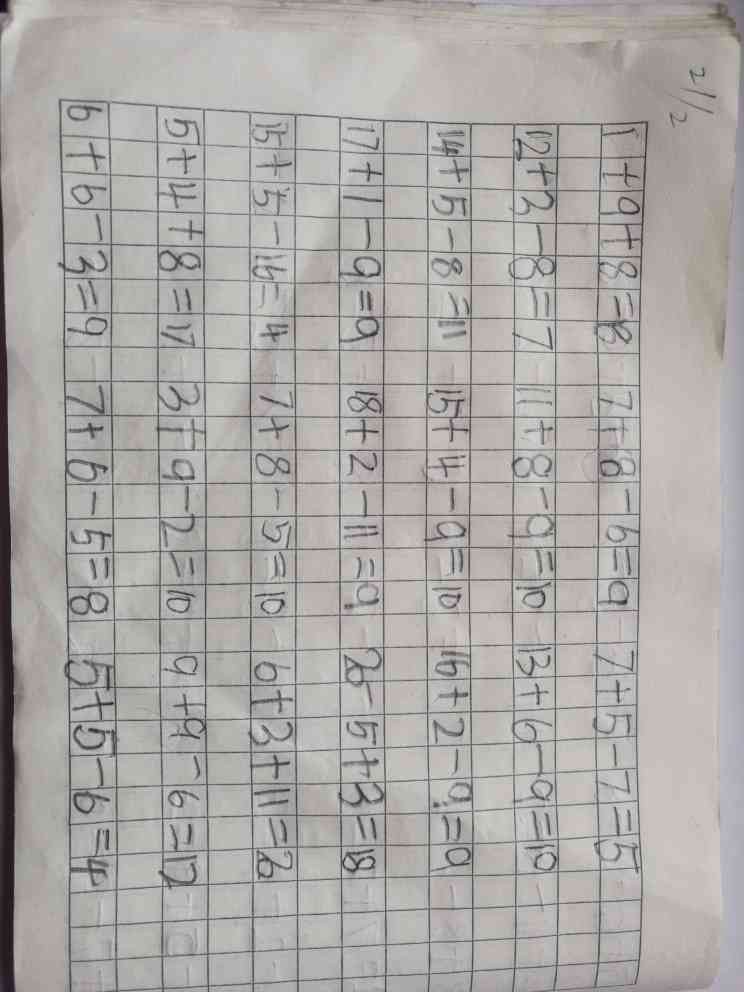 21/2
1+9+8=18 7+8-6=9 7+5-7=5
12+3-8=7 11+8-9=10 13+6-9=10
14+5-8=11 15+4-9=10 16+2-9=9
17+1-9=9 18+2-11=9 20-5+3=18
15+5-16=4 7+8-5=10 6+3+11=20
5+4+8=17 3+9-2=10 9+9-6=12
6+6-3=9 7+6-5=8 5+5-6=4